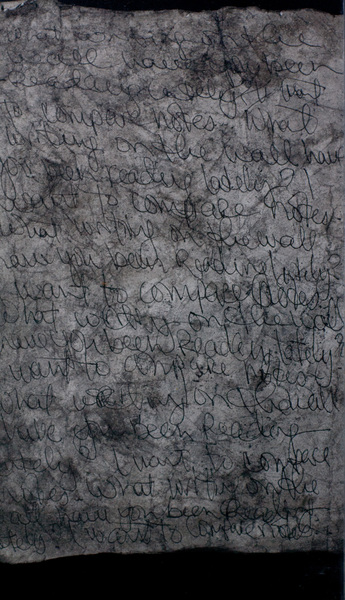 wall have you been
reading lately? I want
to compare notes. What
writing on the wall have
you been reading lately? I
want to compare notes.
What writing on the wall
have you been reading lately?
I want to compare notes.
What writing on the wall
have you been reading lately?
I want to compare notes.
What writing on the wall
have you been reading
lately? I want to compare
notes. What writing on the
wall have you been reading
lately? I want to compare notes.